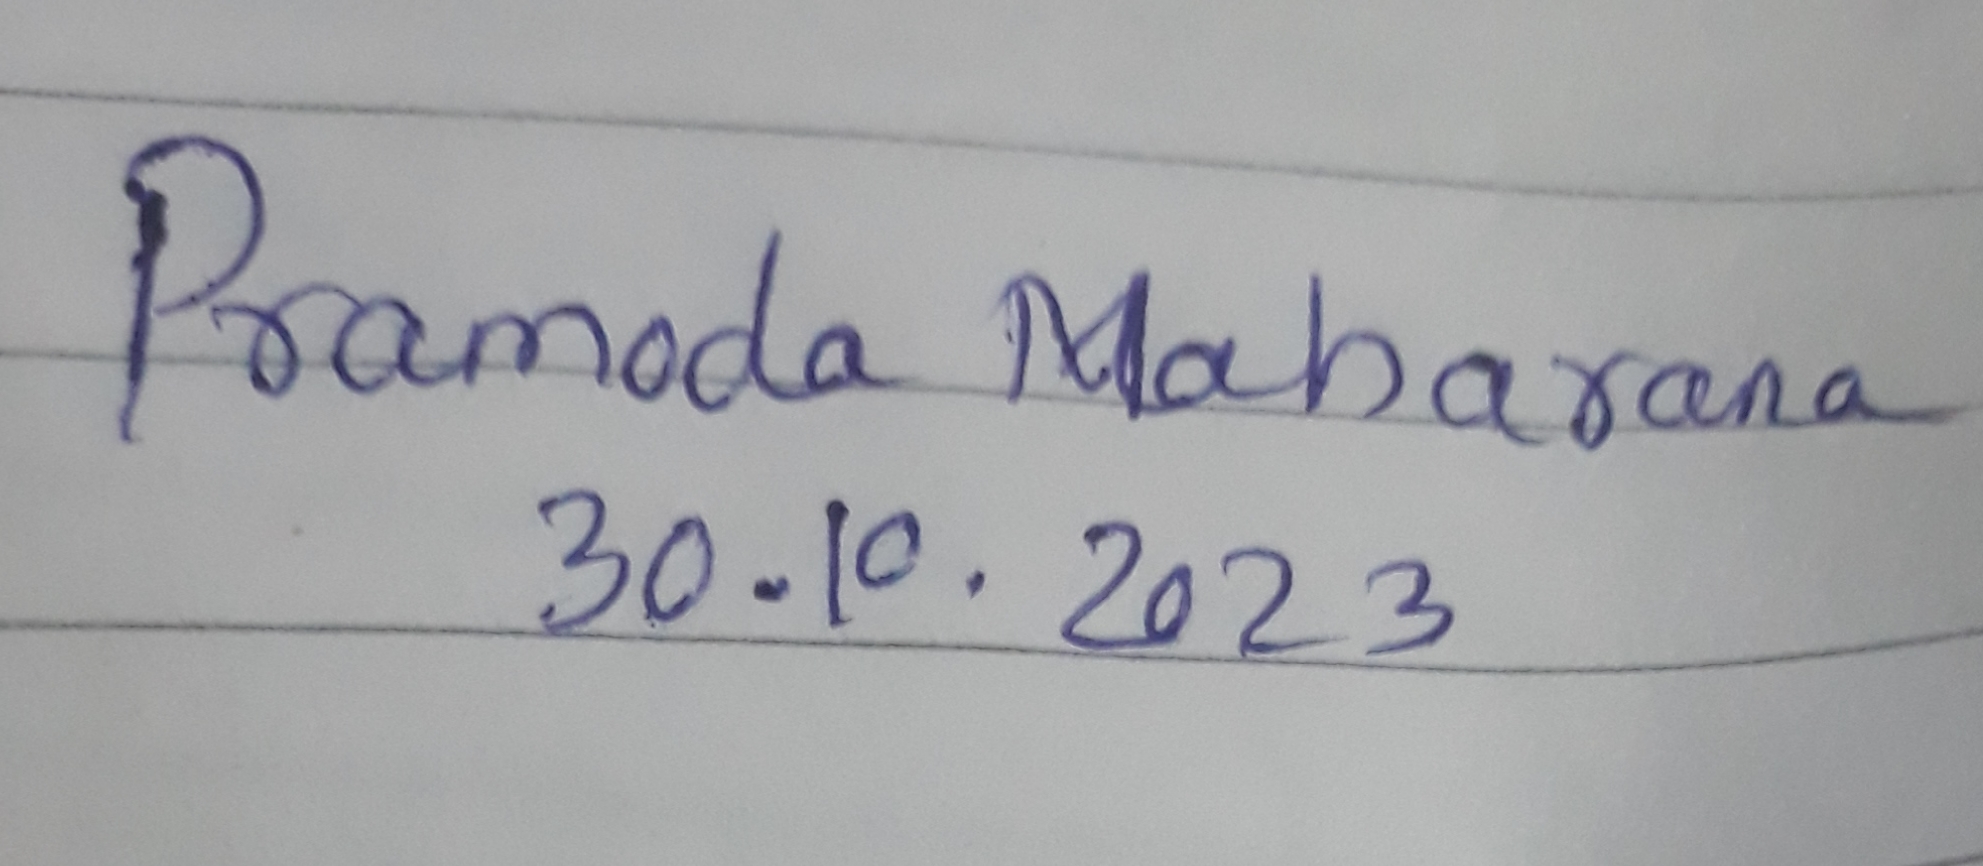 Pramoda Maharana
30.10.2023